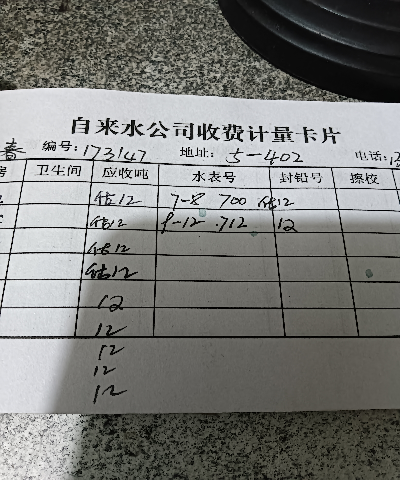 自来水公司收费计量卡片
春 编号:173147 地址:5-402 电话:
房 卫生间 应收吨 水表号 封铅号 擦校
估12 7-8 700 估12
估12 9-12 712 12
估12
估12
12
12
12
12
12